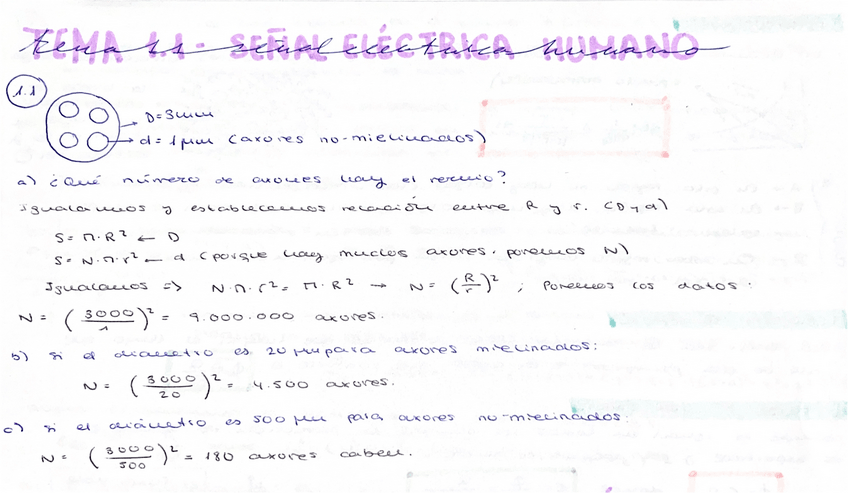 TEMA 1.1 - SEÑAL ELÉCTRICA HUMANO
1.1
D = 3mm
d = 1 μm (axones no-mielinados)
a) ¿Qué número de axones hay el nervio?
Igualamos y establecemos relación entre R y r. (D y d)
S = π·R² ← D
S = N·π·r² ← d (porque hay muchos axones, ponemos N)
Igualamos => N·π·r² = π·R² → N = (R/r)² ; Ponemos los datos:
N = (3000/1)² = 9.000.000 axones.
b) si el diámetro es 20 μm para axones mielinados:
N = (3000/20)² = 4.500 axones.
c) si el diámetro es 500 μm para axones no-mielinados.
N = (3000/500)² = 180 axones caben.